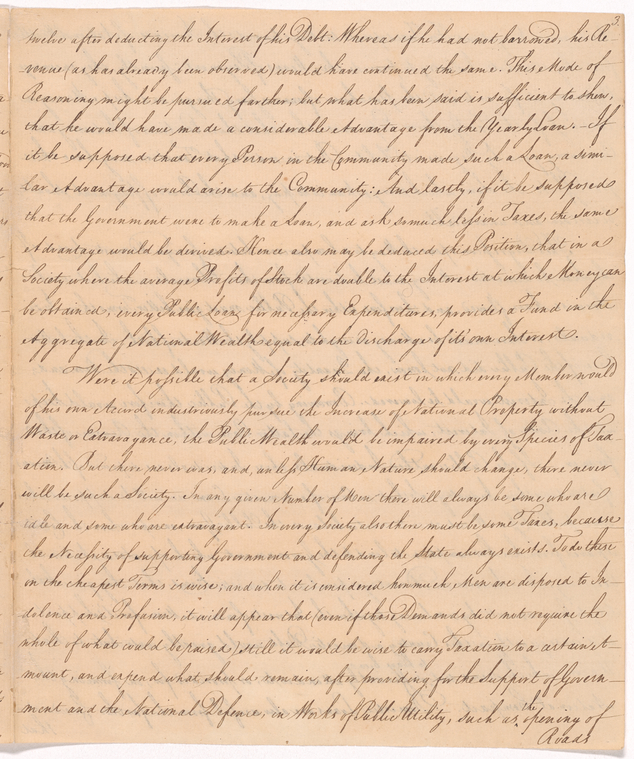 3
twelve after deducting the Interest of his Debt: Whereas if he had not borrowed, his Re
venue (as has already been observed) would have continued the same. This Mode of
Reasoning might be pursued farther; but what has been said is sufficient to shew,
that he would have made a considerable Advantage from the Yearly Loan. – If
it be supposed that every Person in the Community made such a Loan, a simi-
lar Advantage would arise to the Community: And lastly, if it be supposed
that the Government were to make a Loan, and ask so much less in Taxes, the same
Advantage would be derived. Hence also may be deduced this Position, that in a
Society where the average Profits of Stock are double to the Interest at which Money can
be obtained, every Public Loan, for necessary Expenditures, provides a Fund in the
Aggregate of National Wealth equal to the discharge of it's own Interest.
Were it possible that a Society should exist in which every Member would
of his own Accord industriously pursue the Increase of National Property without
Waste or Extravagance, the Public Wealth would be impaired by every Species of Tax-
ation. But there never was, and, unless Human Nature should change, there never
will be such a Society. In any given Number of Men there will always be some who are
idle and some who are extravagant. In every Society also there must be some Taxes, because
the Necessity of supporting Government and defending the State always exists. To do these
on the cheapest Terms is wise; and when it is considered how much Men are disposed to In-
dolence and Profusion, it will appear that (even if those Demands did not require the
whole of what could be raised) still it would be wise to carry Taxation to a certain A-
mount, and expend what should remain, after providing for the Support of Govern-
ment and the National Defence, in Works of Public Utility, such as the opening of
Roads